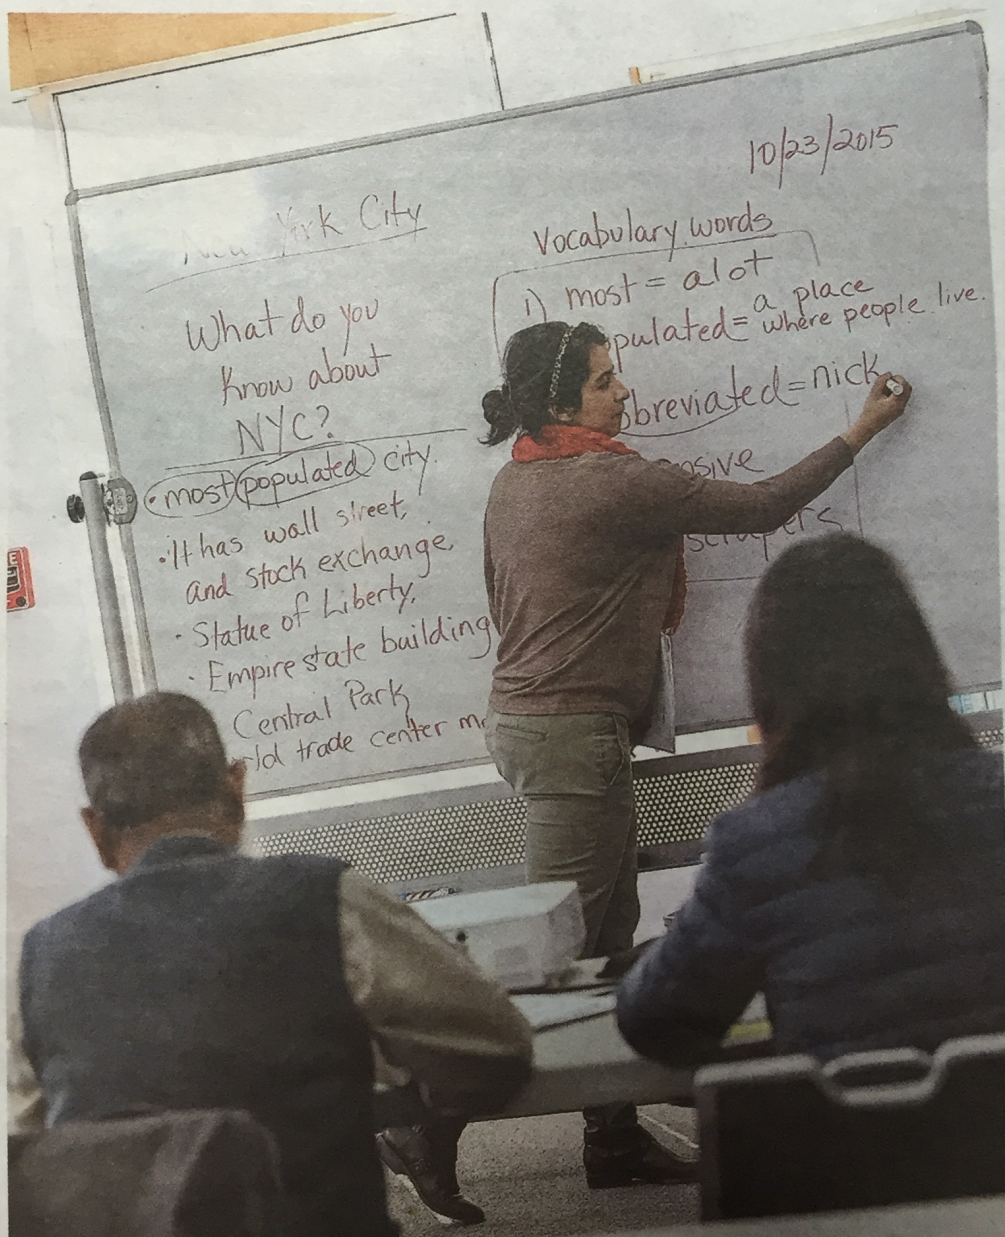 10/23/2015
York City
What do you
know about
NYC?
• most populated city.
• It has wall street,
and stock exchange,
• Statue of Liberty,
• Empire state building
Central Park
trade center
Vocabulary words
1) most = alot
= a place
where people live.
= nick